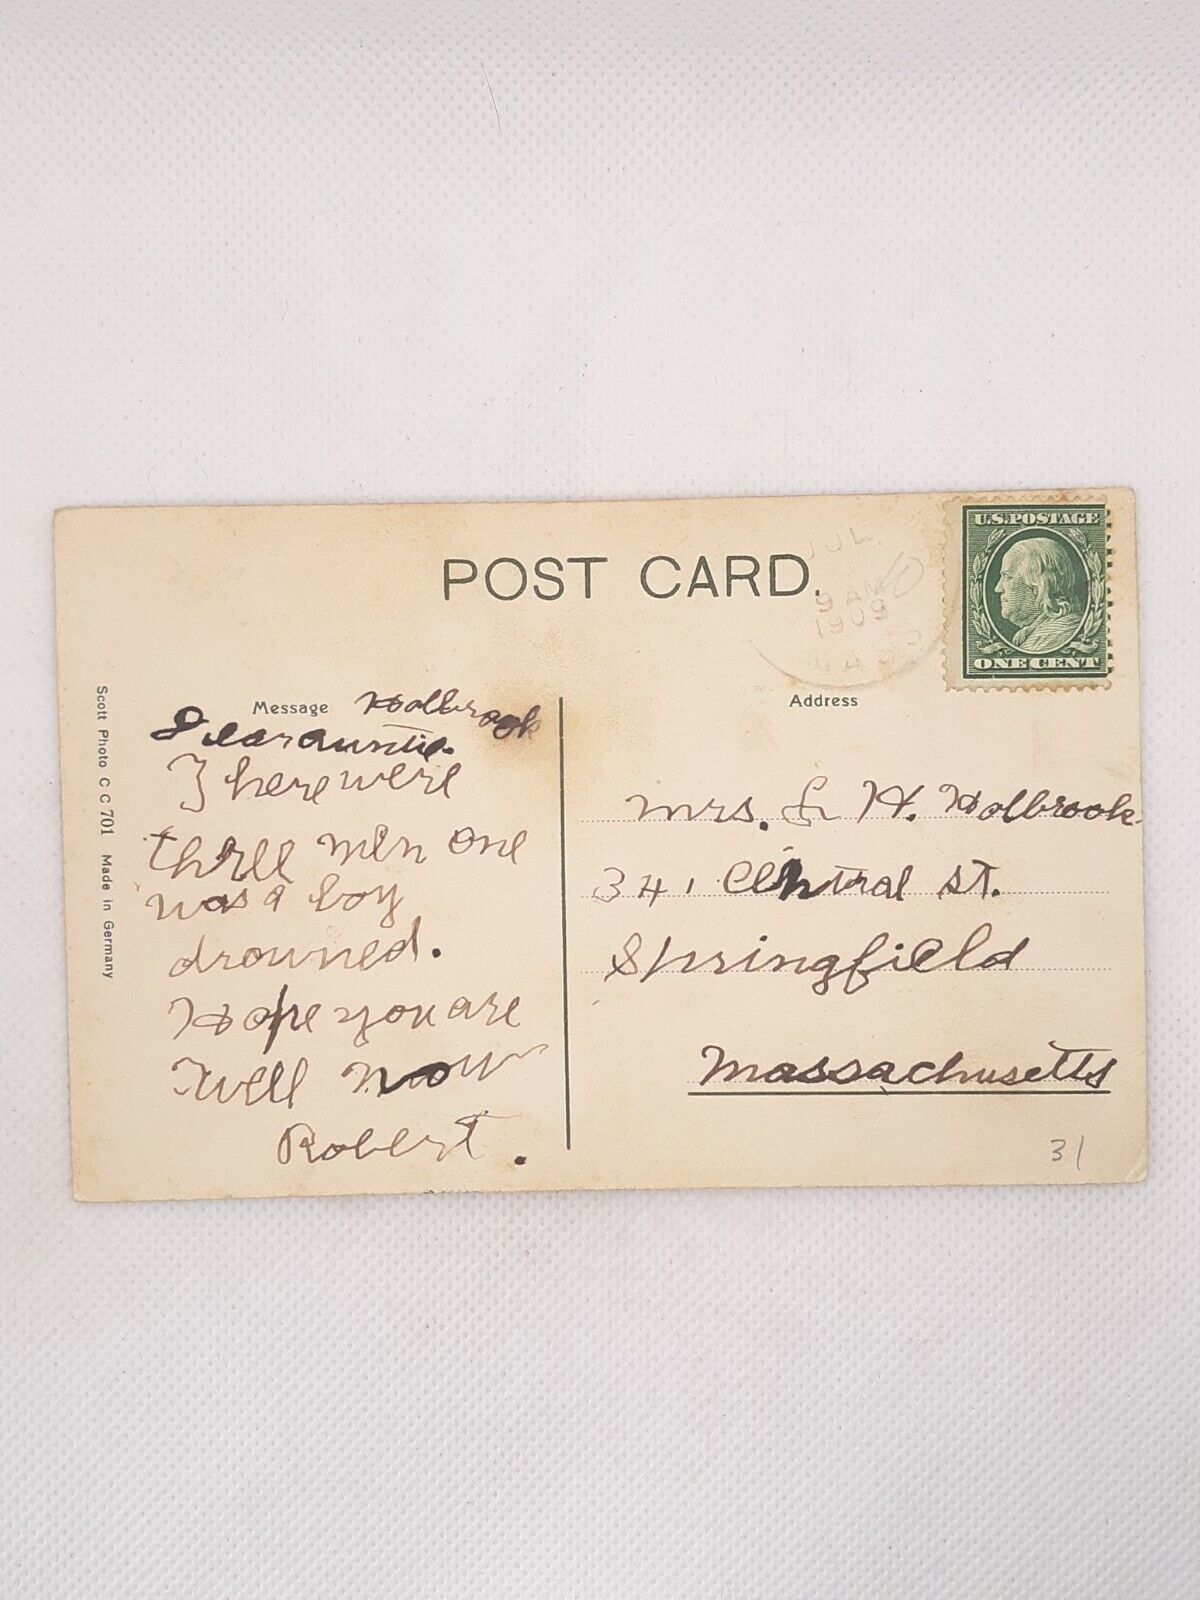 POST CARD.
U.S. POSTAGE
ONE CENT
JUL
9 AM
1909
Message
Address
Holbrook
Dear auntie.
There were
three men one
was a boy
drowned.
Hope you are
well now
Robert.
Mrs. L H. Holbrook
341 Central St.
Springfield
Massachusetts
31
Scott Photo C C 701 Made in Germany